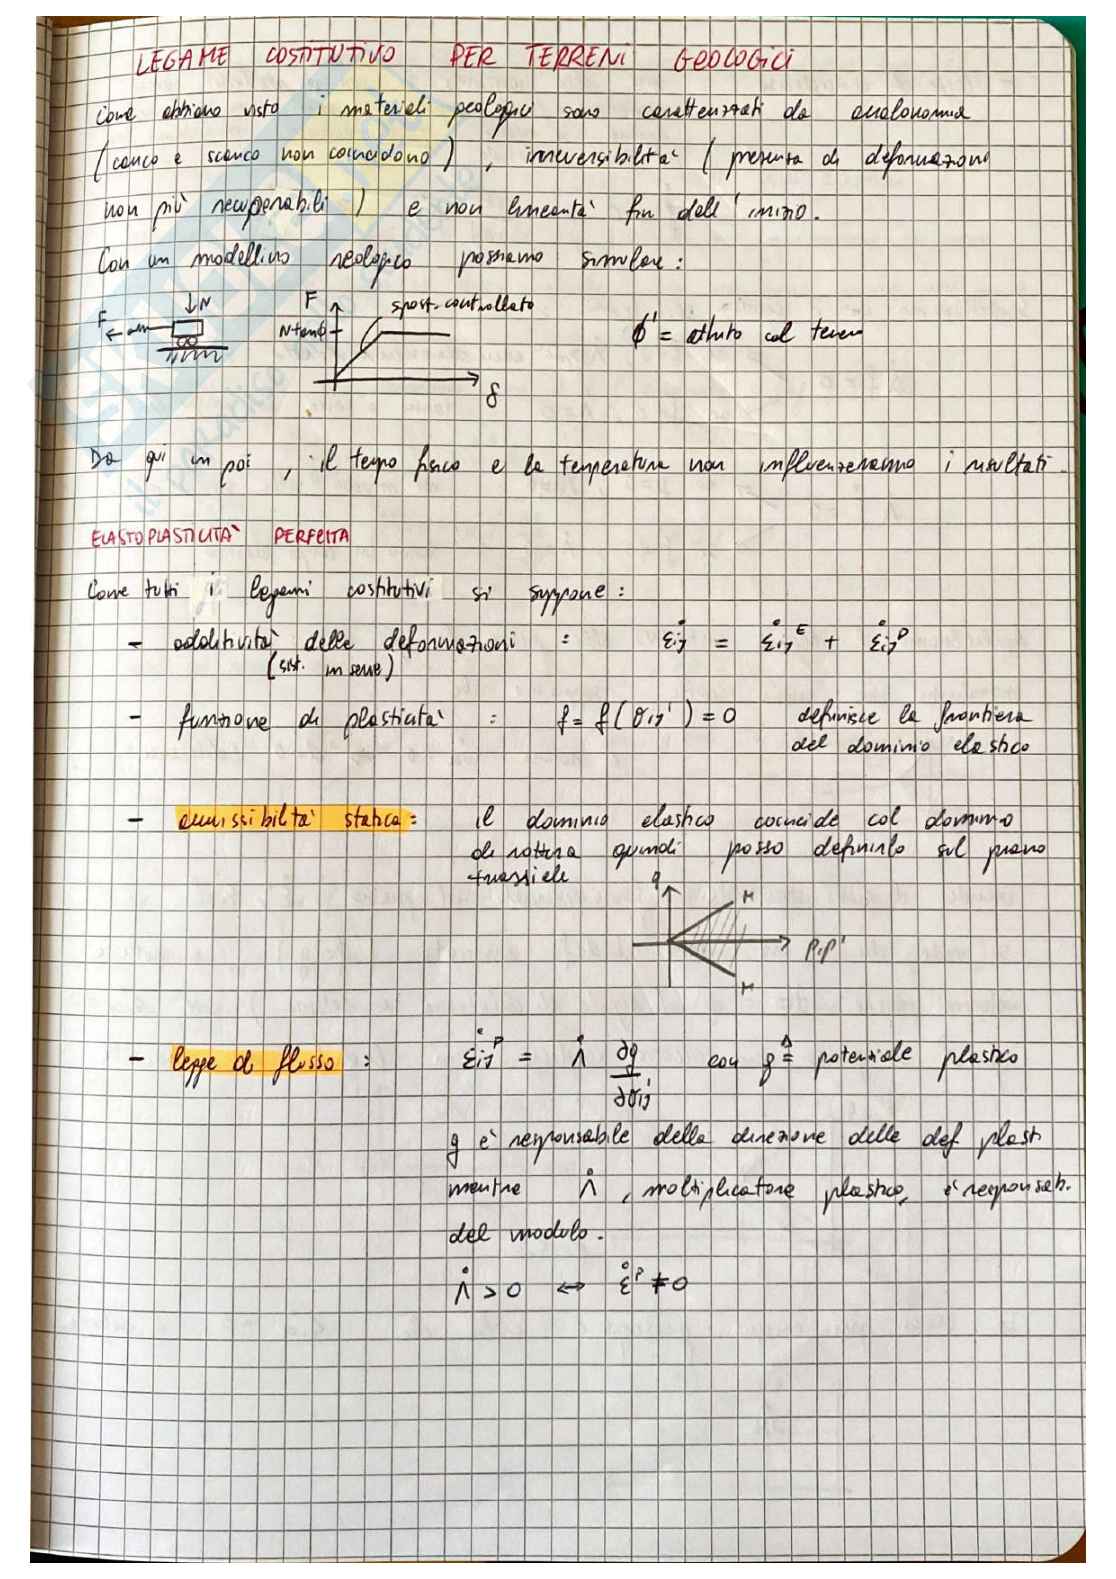 LEGAME COSTITUTIVO PER TERRENI GEOLOGICI
Come abbiamo visto i materiali geologici sono caratterizzati da anolonomia
(carico e scarico non coincidono), irreversibilità (presenza di deformazioni
non più recuperabili) e non linearità fin dall'inizio.
Con un modellino reologico possiamo simulare:
F N F spost. controllato
N tanϕ ϕ' = attrito col terr
δ
Da qui in poi, il tempo fisico e la temperatura non influenzeranno i risultati.
ELASTOPLASTICITÀ PERFETTA
Come tutti i legami costitutivi si suppone:
- additività delle deformazioni : ε̇ij = ε̇ij^E + ε̇ij^P
(sist. in serie)
- funzione di plasticità : f = f(σij') = 0 definisce la frontiera
del dominio elastico
- ammissibiltà statica: il dominio elastico coincide col dominio
di rottura quindi posso definirlo sul piano
triassiale
q M
p,p'
M
- legge di flusso : ε̇ij^P = Λ̇ ∂g/∂σij' con g ≙ potenziale plastico
g è responsabile della direzione delle def plast.
mentre Λ̇, moltiplicatore plastico, è responsab.
del modulo.
Λ̇ > 0 ↔ ε̇^P ≠ 0